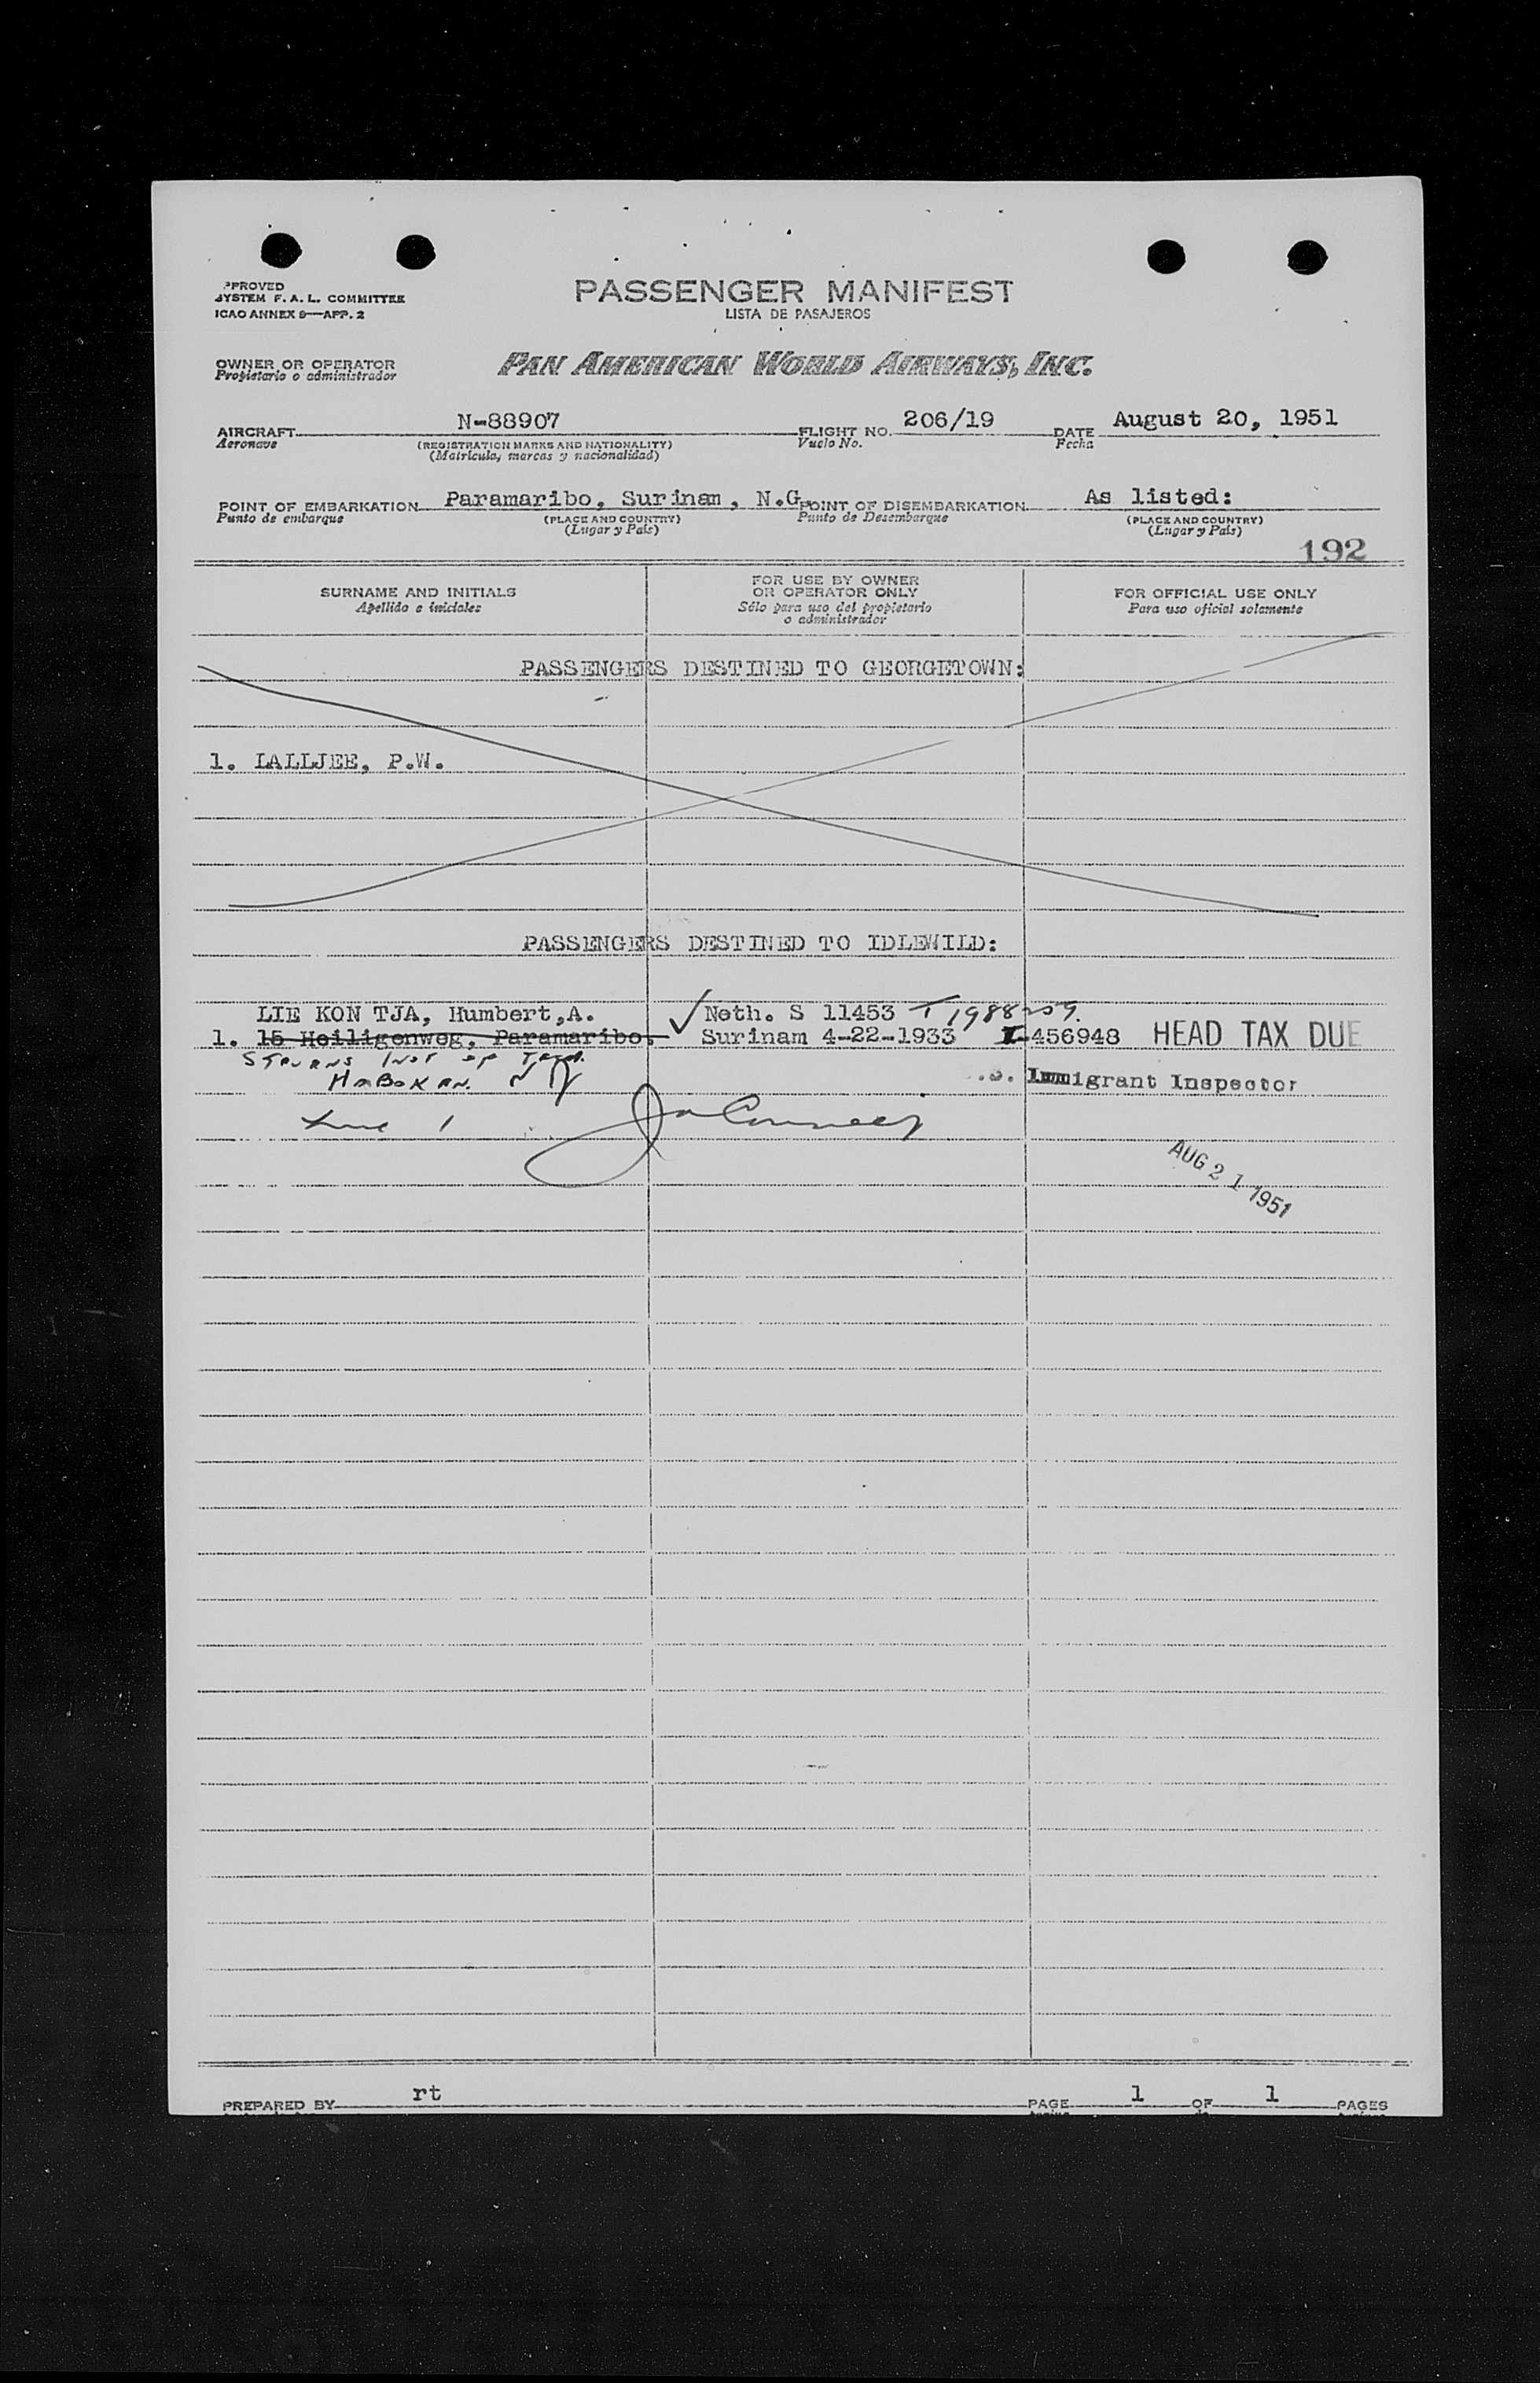 PPROVED
SYSTEM F. A. L. COMMITTEE
ICAO ANNEX 9—APP. 2
PASSENGER MANIFEST
LISTA DE PASAJEROS
OWNER OR OPERATOR
Propietario o administrador
PAN AMERICAN WORLD AIRWAYS, INC.
AIRCRAFT N-88907 FLIGHT NO. 206/19 DATE August 20, 1951
Aeronave (REGISTRATION MARKS AND NATIONALITY) Vuelo No. Fecha
(Matricula, marcas y nacionalidad)
POINT OF EMBARKATION Paramaribo, Surinam, N.G. POINT OF DISEMBARKATION As listed:
Punto de embarque (PLACE AND COUNTRY) Punto de Desembarque (PLACE AND COUNTRY)
(Lugar y País) (Lugar y País)
192
SURNAME AND INITIALS
Apellido e iniciales
FOR USE BY OWNER
OR OPERATOR ONLY
Sólo para uso del propietario
o administrador
FOR OFFICIAL USE ONLY
Para uso oficial solamente
PASSENGERS DESTINED TO GEORGETOWN:
1. LALLJEE, P.W.
PASSENGERS DESTINED TO IDLEWILD:
LIE KON TJA, Humbert,A. Neth. S 11453 T 1988259.
1. 15 Heiligenweg, Paramaribo. Surinam 4-22-1933 I-456948 HEAD TAX DUE
INST OF
HOBOKEN. NJ
Immigrant Inspector
Line 1
AUG 21 1951
PREPARED BY rt PAGE 1 OF 1 PAGES